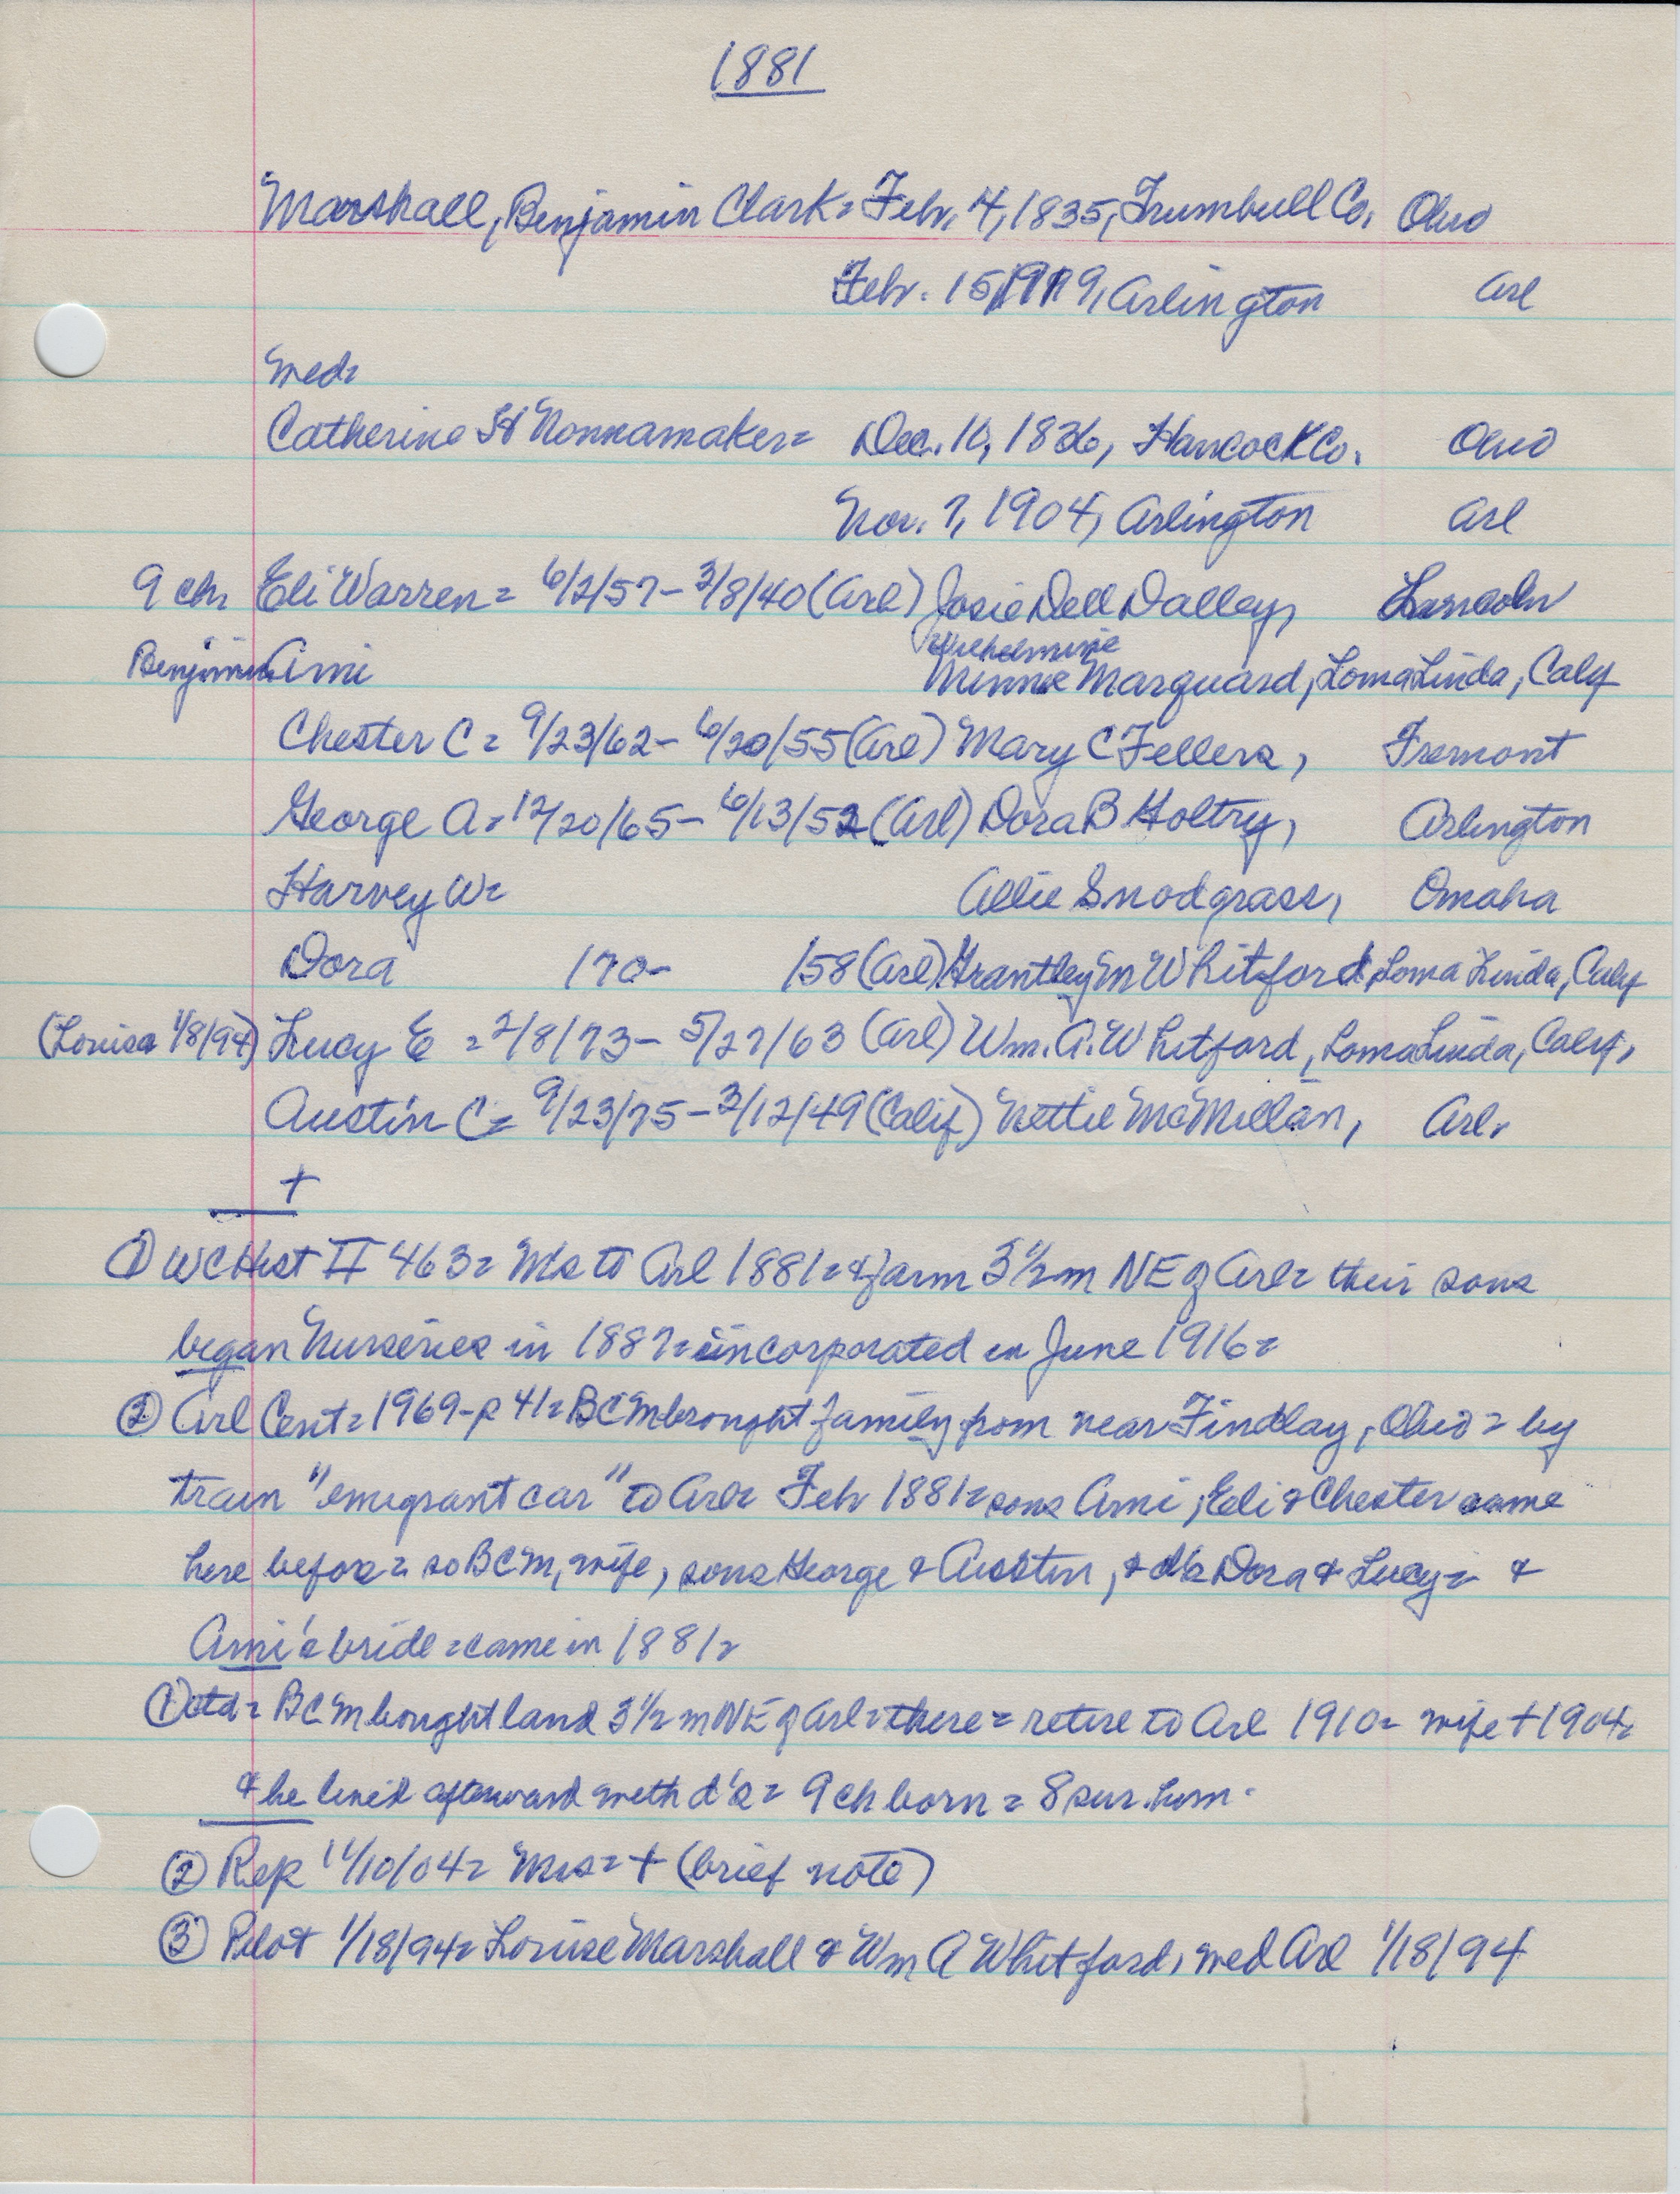 1881
Marshall, Benjamin Clark = Feb. 4, 1835, Trumbull Co. Ohio
Feb. 15, 1919, Arlington Arl
med=
Catherine H Nonnamaker = Dec. 10, 1836, Hancock Co. Ohio
Nov. 7, 1904, Arlington Arl
9 ch= Eli Warren = 6/2/57 - 3/8/40 (Arl) Josie Dell Dalley, Lincoln
Wilhelmine
Benjamin Ami Minnie Marquard, Loma Linda, Calif
Chester C = 9/23/62 - 6/20/55 (Arl) Mary C Fellers, Fremont
George A = 12/20/65 - 6/13/52 (Arl) Dora B Holtry, Arlington
Harvey W = Allie Snodgrass, Omaha
Dora /70 - /58 (Arl) Grantley M Whitford, Loma Linda, Calif
(Louisa 1/8/94) Lucy E = 2/8/73 - 5/27/63 (Arl) Wm. A. Whitford, Loma Linda, Calif.
Austin C = 9/23/75 - 3/12/49 (Calif) Nettie McMillan, Arl.
+
① WC Hist II 463 = M's to Arl 1881 = & farm 3 1/2 m NE of Arl = their sons
began Nurseries in 1887 = incorporated in June 1916 =
② Arl Cent = 1969 - p 41 = BCM brought family from near Findlay, Ohio = by
train "emigrant car" to Arl = Feb 1881 = sons Ami, Eli & Chester came
here before = so BCM, wife, sons George & Austin, & d's Dora & Lucy = &
Ami's bride = came in 1881 =
① otd = BCM bought land 3 1/2 m NE of Arl = there = retire to Arl 1910 = wife + 1904 =
& he lived afterward with d's = 9 ch born = 8 sur. him -
② Rep 11/10/04 = Mrs = + (brief note)
③ Pilot 1/18/94 = Louise Marshall & Wm A Whitford, med Arl 1/18/94